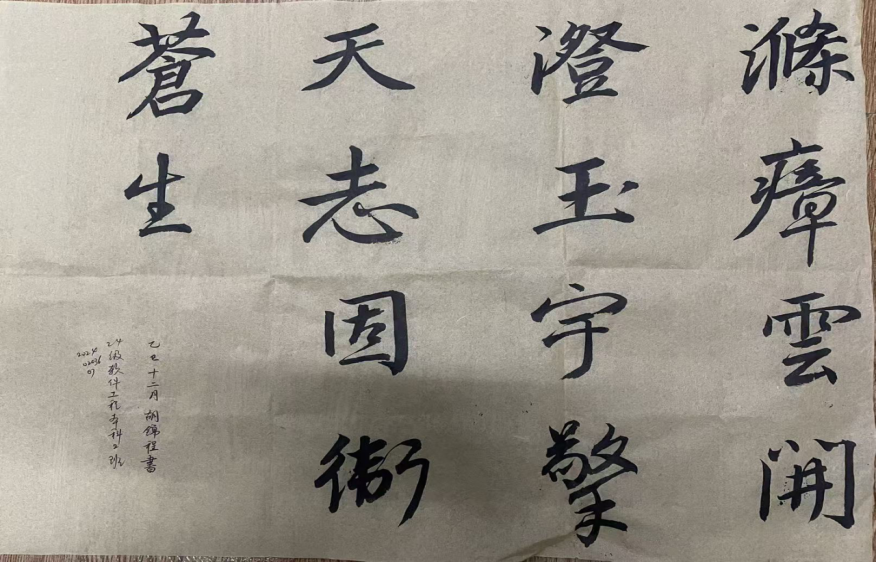 滌瘴雲開
澄玉宇擎
天志固衛
蒼生
乙巳十二月 胡錦程書
24级软件工程本科2班